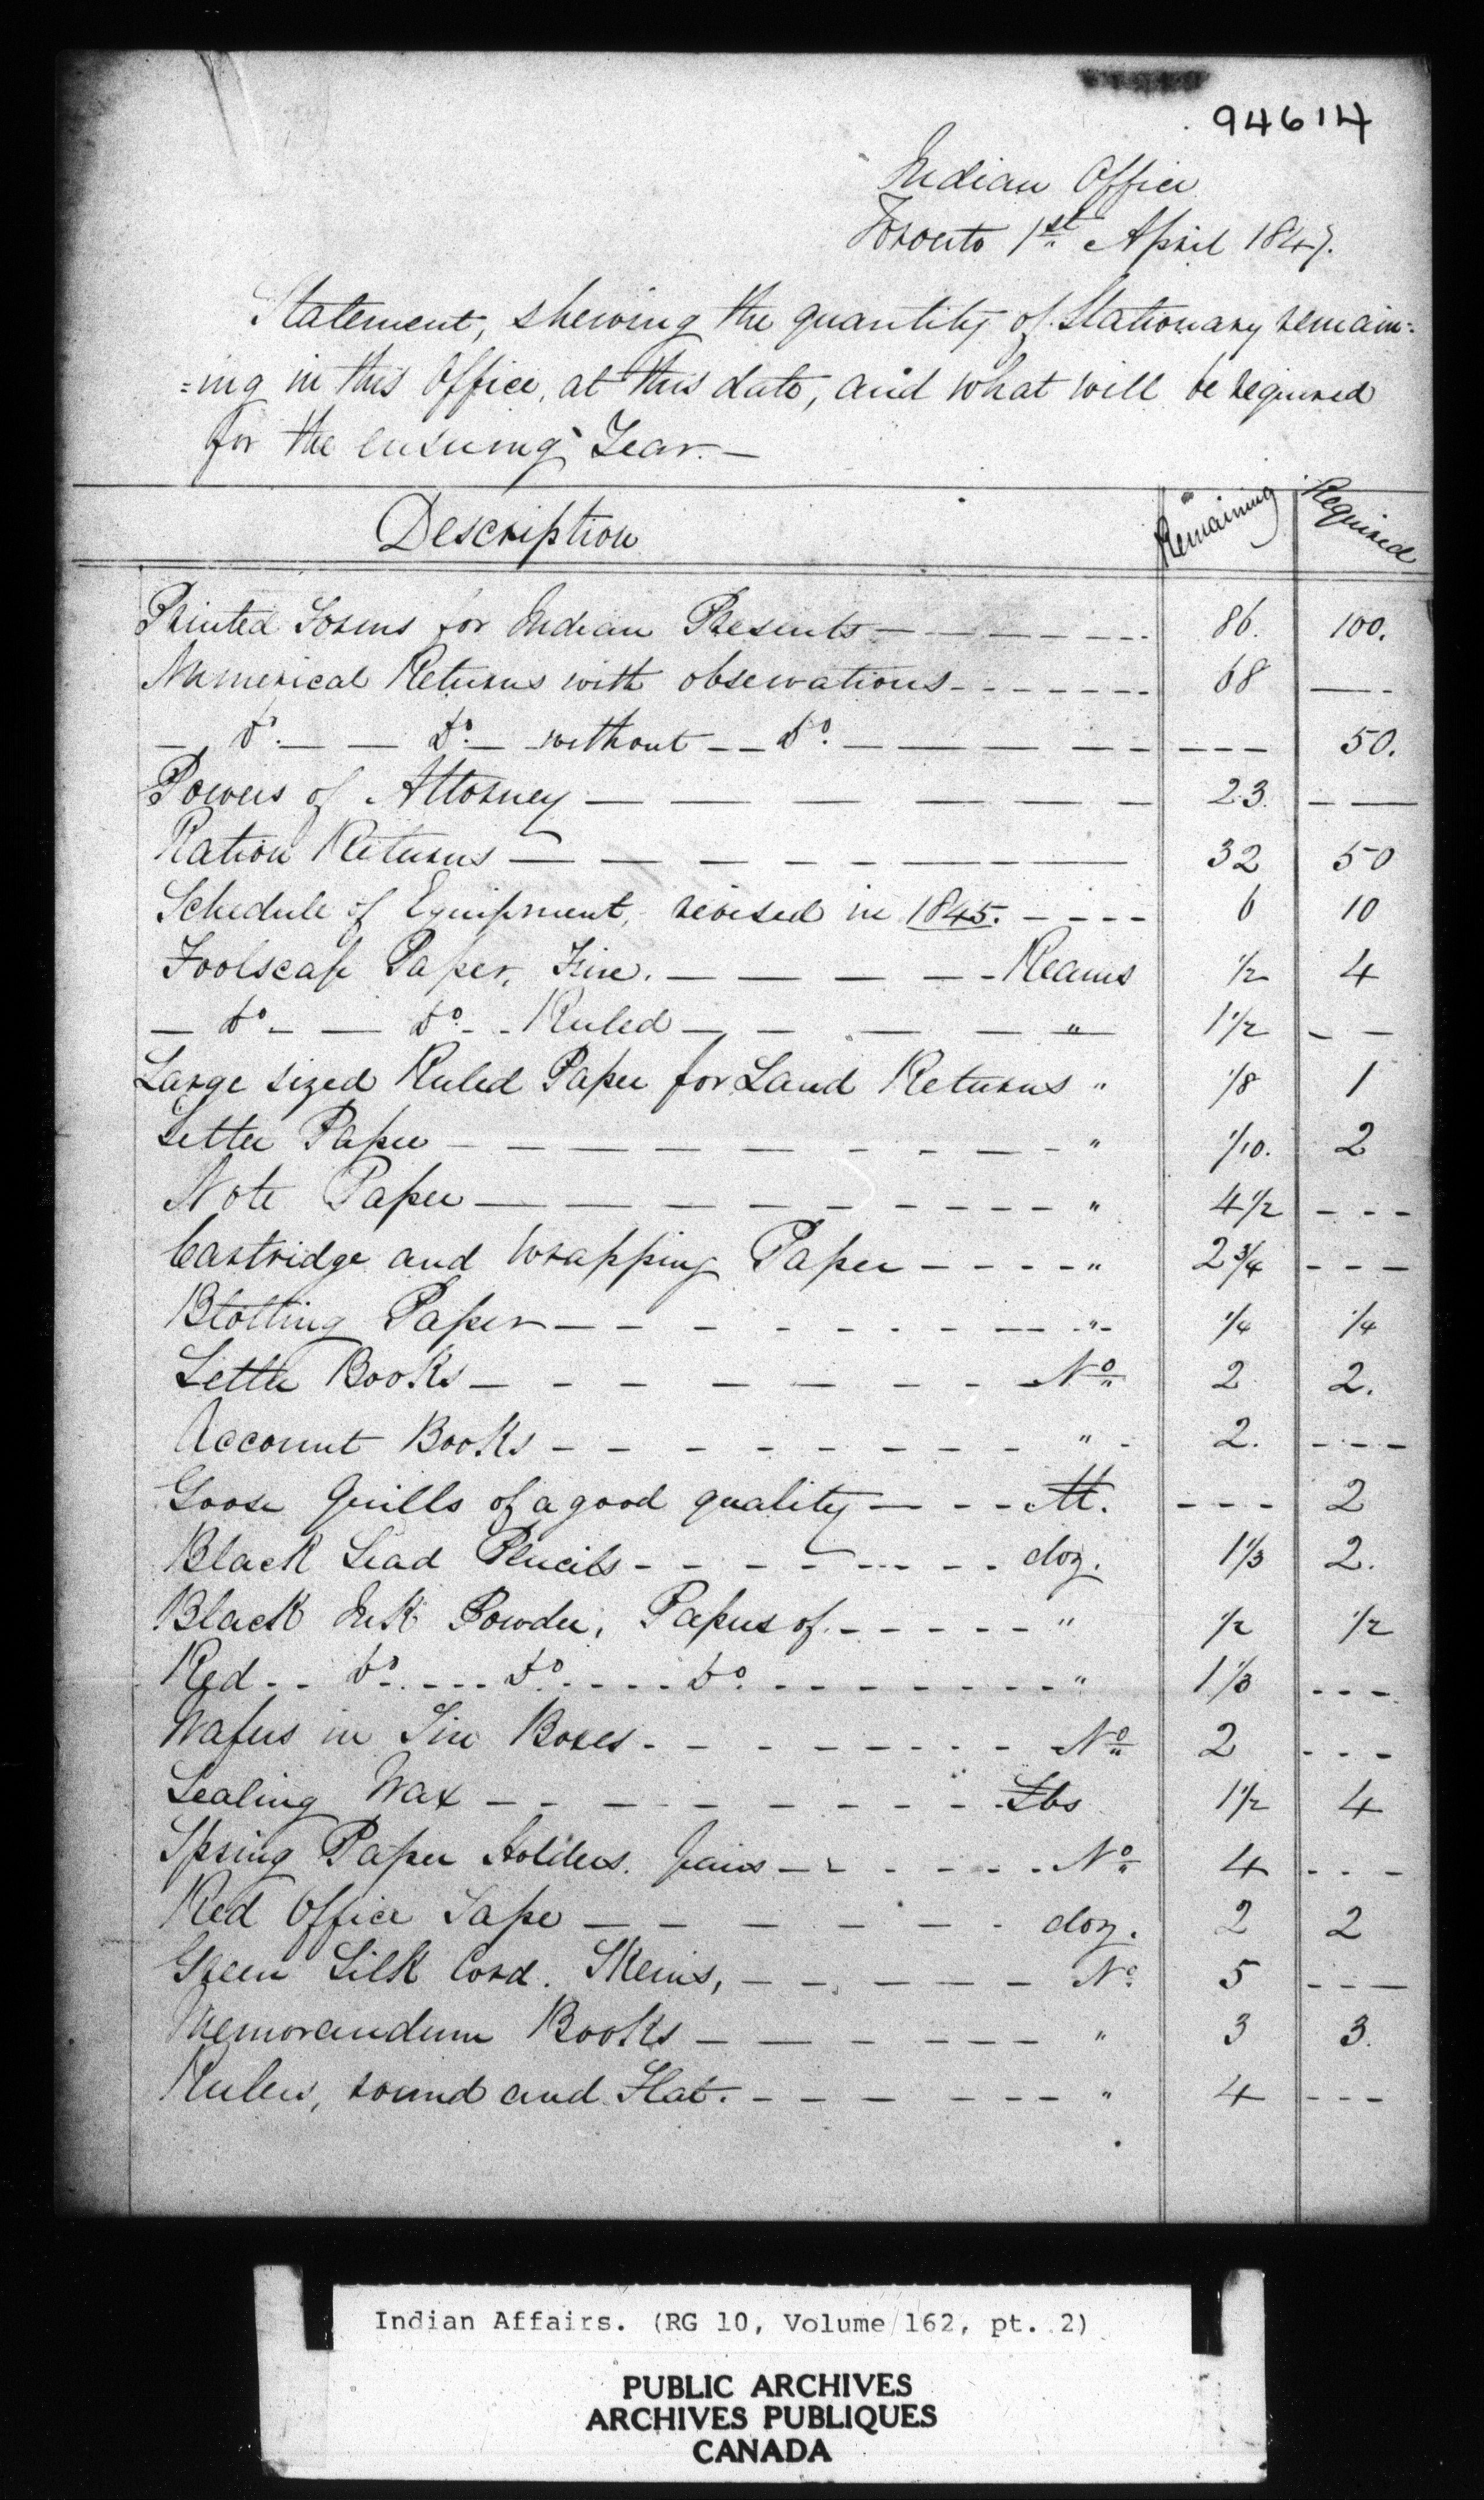 94614
Indian Office
Toronto 1st April 1847.
Statement, shewing the quantity of Stationary remain=
=ing in this Office, at this date, and what will be required
for the ensuing Year.—
Description Remaining Required
Printed Forms for Indian Presents — — — — — 86. 100.
Numerical Returns with observations - - - - - - - 68 — -
— Do. — — Do. — without — — Do. — — — — — - - - - 50.
Powers of Attorney — — — — — — — 23. - —
Ration Returns — — — — — — — 32 50
Schedule of Equipment, revised in 1845. - - - - 6 10
Foolscap Paper, Fine. — — — — - Reams 1/2 4
— Do - — Do. - - Ruled — — — — " 1 1/2 - —
Large sized Ruled Paper for Land Returns " 1/8 1
Letter Paper — — — — — - - - — - " 1/10. 2
Note Paper — — — — — - - - - - " 4 1/2 - - -
Cartridge and Wrapping Paper - - - - " 2 3/4 - - -
Blotting Paper — - - - - - - - — " 1/4 1/4
Letter Books — - - - — — - - No. 2 2.
Account Books - - - - - - - - - " - 2. - - -
Goose Quills of a good quality — - - M. - - - 2
Black Lead Pencils - - - - - - - - - doz. 1 1/3 2.
Black Ink Powder, Papers of. - - - - - " 1/2 1/2
Red - - Do. - - - Do. - - - - Do. - - - - - - - " 1 1/3 - - -
Wafers in Tin Boxes - - - - - - - - - No. 2 - - -
Sealing Wax — - - - - - - - - - Lbs 1 1/2 4
Spring Paper Holders. pairs — - - - - - No. 4 - - -
Red Office Tape — — — - - - - doz. 2 2
Green Silk Cord. Skeins, — - - - — - No. 5 - - —
Memorandum Books — — — - - - - " 3 3.
Rulers, round and Flat. - - - — - - - - " 4 - - -
Indian Affairs. (RG 10, Volume 162, pt. 2)
PUBLIC ARCHIVES
ARCHIVES PUBLIQUES
CANADA